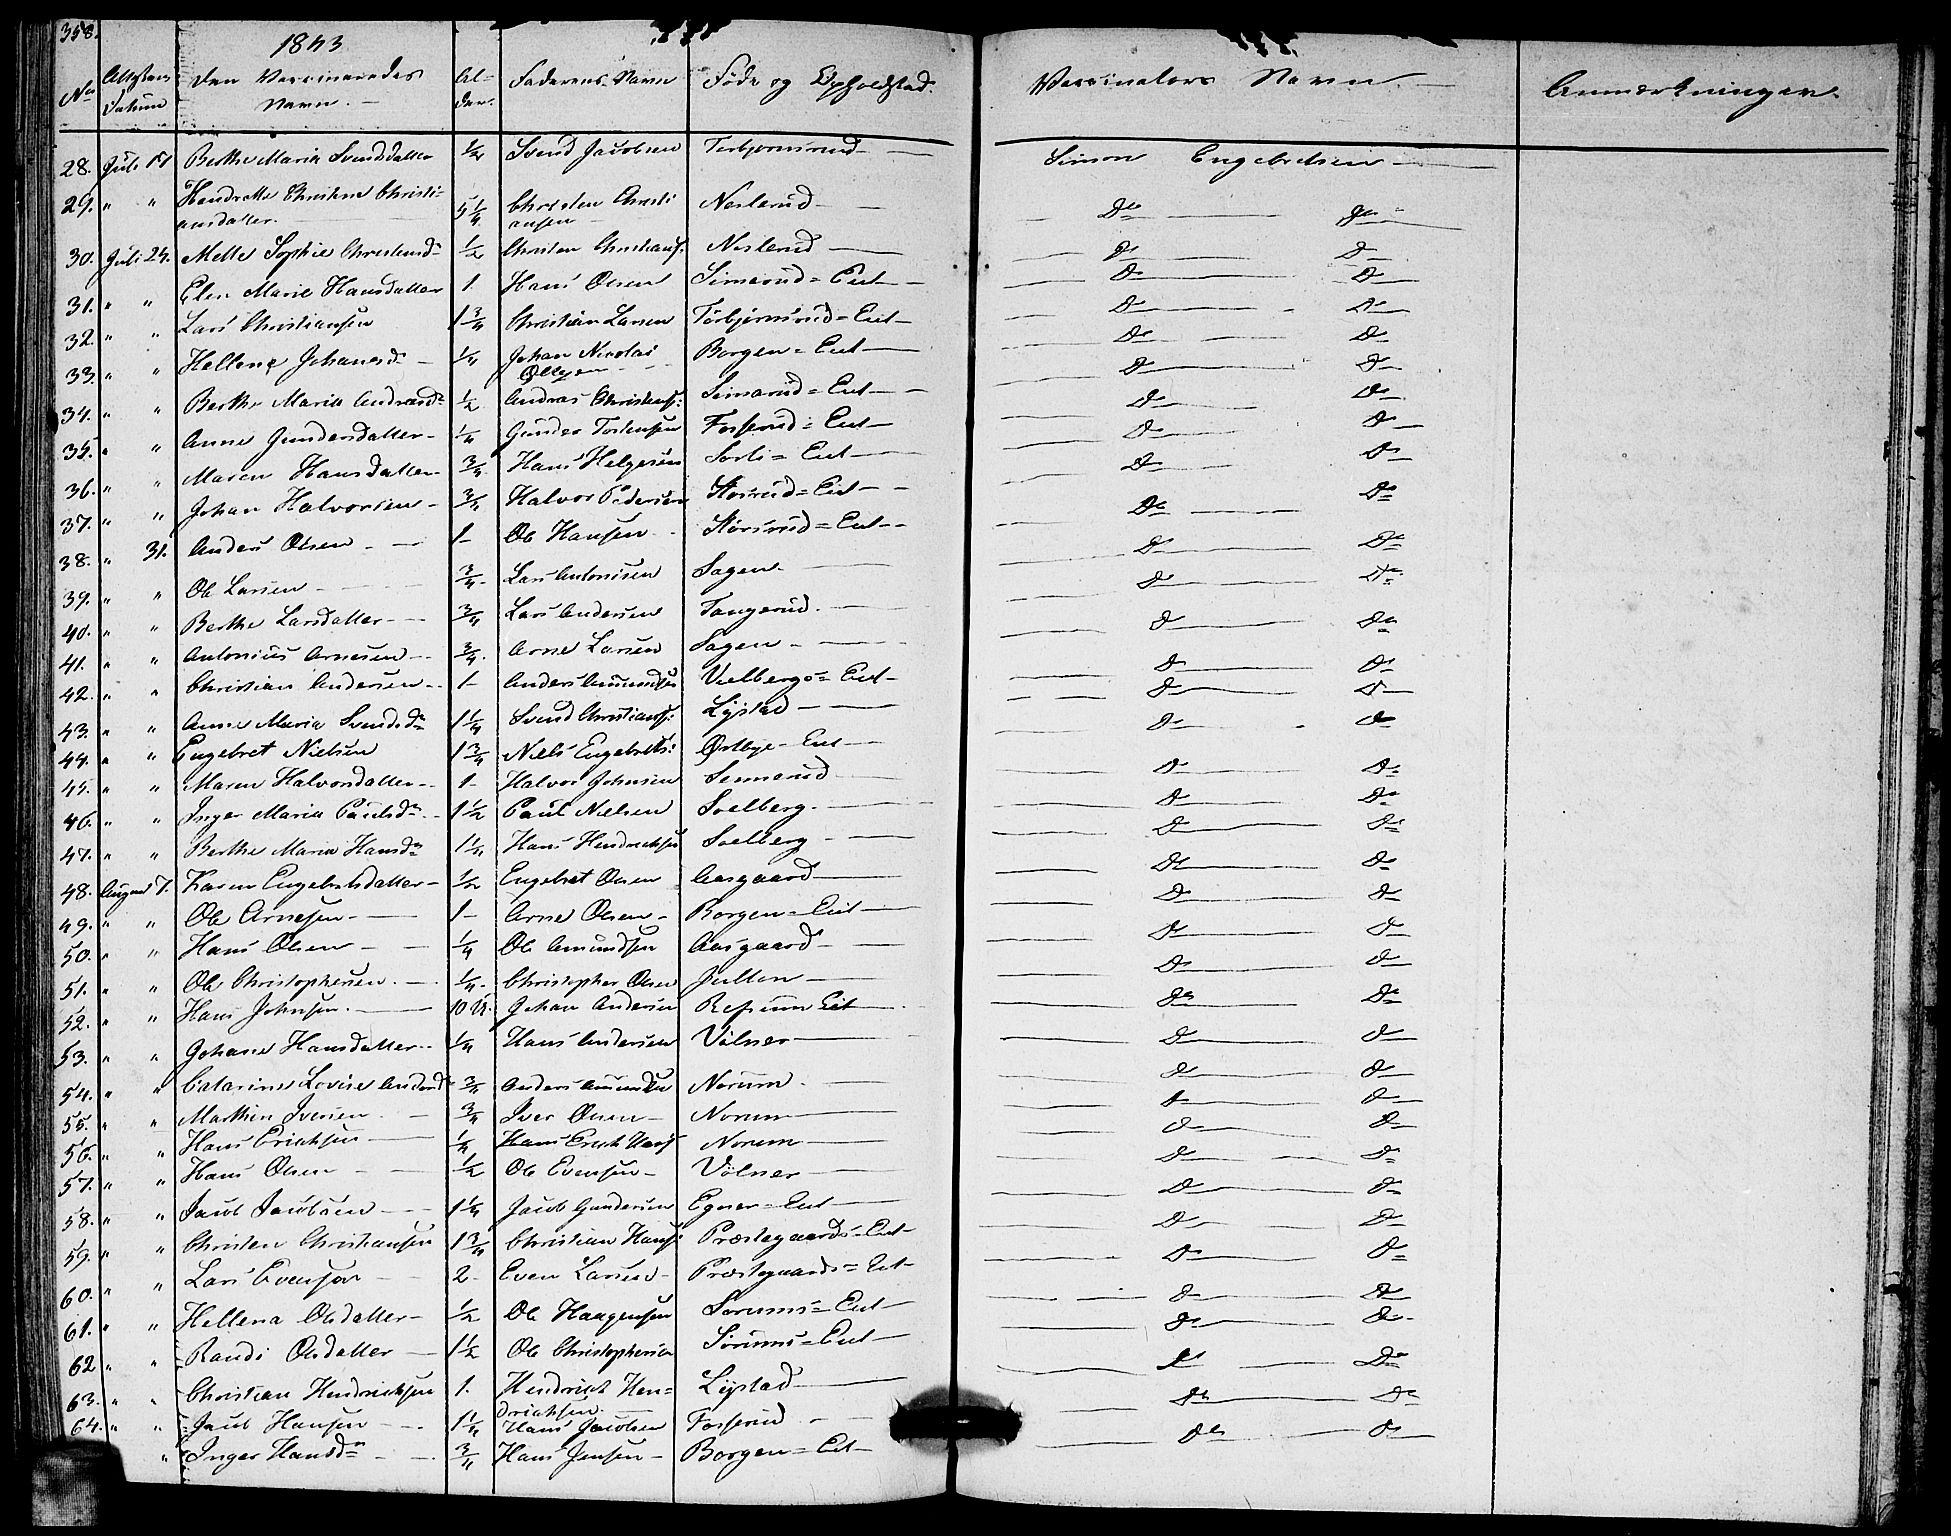 358.
1843
No Attestens Datum Den Vaccineredes Navn. Alder. Faderens Navn Føde og Opholdstad. Vaccinators Navn. Anmærkninger.
28. Juli 17 Berthe Maria Svendsdatter 1/2 Svend Jacobsen Torbjørnsrud Simon Engebretsen
29. " " Christine Christiansdatter. 5 1/4 Christen Christiansen Neslerud Do Do
30. Juli 24. Mette Sophie Christensd 1/2 Christen Christians: Neslerud D D
31. " " Elen Marie Hansdatter 1. Hans Olsen Simerud = Eiet D D
32. " " Lars Christiansen 1 3/4 Christian Larsen Torbjørnsrud = Eiet D D
33. " " Hellene Johansd 1/4 Johan Nicolai Borgen = Eiet D D
34. " " Berthe Maria Andreasd 1/2 Andreas Christians: Simerud = Eiet D D
35. " " Anne Gundersdatter 1/4 Gunder Tostensen Fosserud = Eiet D D
36. " " Maren Hansdatter 3/4 Hans Helgesen Sorli = Eiet D D
37. " " Johan Halvorsen 3/4 Halvor Pedersen Korsrud = Eiet D D
38. " 31. Anders Olsen 1 Ole Hansen Korsrud = Eiet Do Do
39. " " Ole Larsen 3/4 Lars Antonisen Sagen D Do
40. " " Berthe Larsdatter 3/4 Lars Andersen Tangerud. D Do
41. " " Antonius Arnesen 3/4 Arne Larsen Sagen D Do
42. " " Christian Andersen 1 Anders Amundsen Vælbergs = Eiet D D
43. " " Anne Maria Svendsd 1 1/4 Svend Christians: Lystad D D
44. " " Engebret Nielsen 1 3/4 Niels Engebrets: Østbye = Eiet D D
45. " " Maren Halvorsdatter 1 Halvor Johnsen Sennerud D D
46. " " Inger Maria Paulsd 1 1/2 Paul Nielsen Soelberg D Do
47. " " Berthe Maria Hansd 1 1/4 Hans Hendrichsen Soelberg D Do
48. August 7. Karen Engebretsdatter 1/2 Engebret Olsen Aasgaard D D
49. " " Ole Arnesen 1 Arne Olsen Borgen = Eiet D D
50. " " Hans Olsen 1/4 Ole Amundsen Aasgaard D D
51. " " Ole Christophersen 1/4 Christopher Olsen Jullen D D
52. " " Hans Johnsen 10 U. Johan Andersen Refsum Eiet Do Do
53. " " Johane Hansdatter 1/4 Hans Andersen Vølner D D
54. " " Catarine Lovise Andersd 3/4 Anders Amundsen Norum D D
55. " " Mathien Iversen 3/4 Iver Olsen Norum D D
56. " " Hans Erichsen 1/2 Hans Erich Hans: Norum D D
57. " " Hans Olsen 1/2 Ole Evensen Vølner D D
58. " " Jacob Jacobsen 1 1/4 Jacob Gundersen Egner = Eiet D D
59. " " Christen Christiansen 1 3/4 Christian Hans: Præstegaards = Eiet D D
60. " " Lars Evensen 2 Even Larsen Præstegaards = Eiet D D
61. " " Hellena Olsdatter 1/2 Ole Haagensen Sørums = Eiet D D
62 " " Randi Olsdatter 1 1/2 Ole Christophersen Sørums = Eiet D D
63. " " Christian Hendrichsen 1. Hendrich Hendrichsen. Lystad D Do
64. " " Jacob Hansen 1 1/4 Hans Jacobsen Fosserud Do D
" Inger Hansd 3/4 Hans Jensen Borgen = Eiet Do D